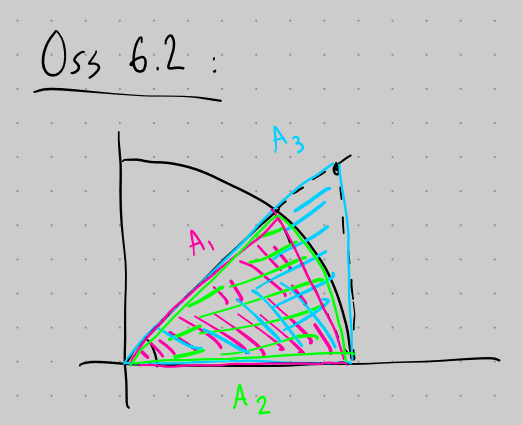 Oss 6.2 :
A3
A1
A2